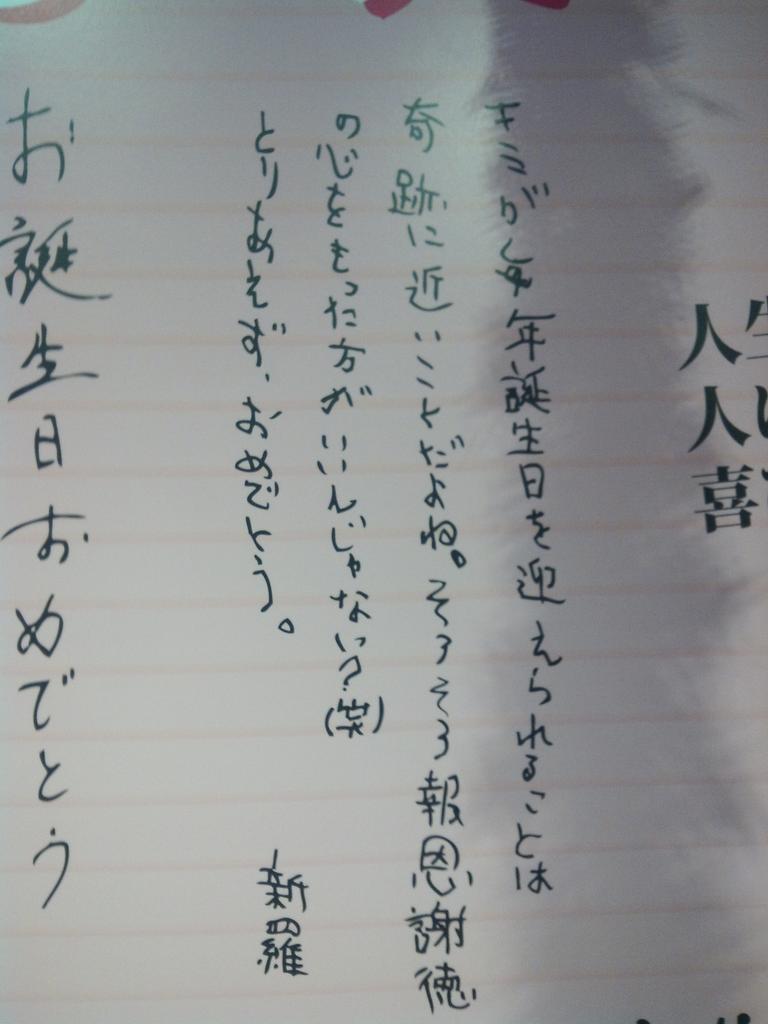 人生
人
喜
キミが毎年誕生日を迎えられることは
奇跡に近いことだよね。そろそろ報恩謝徳
の心をもった方がいいんじゃない?(笑)
とりあえず、おめでとう。
新羅
お誕生日おめでとう